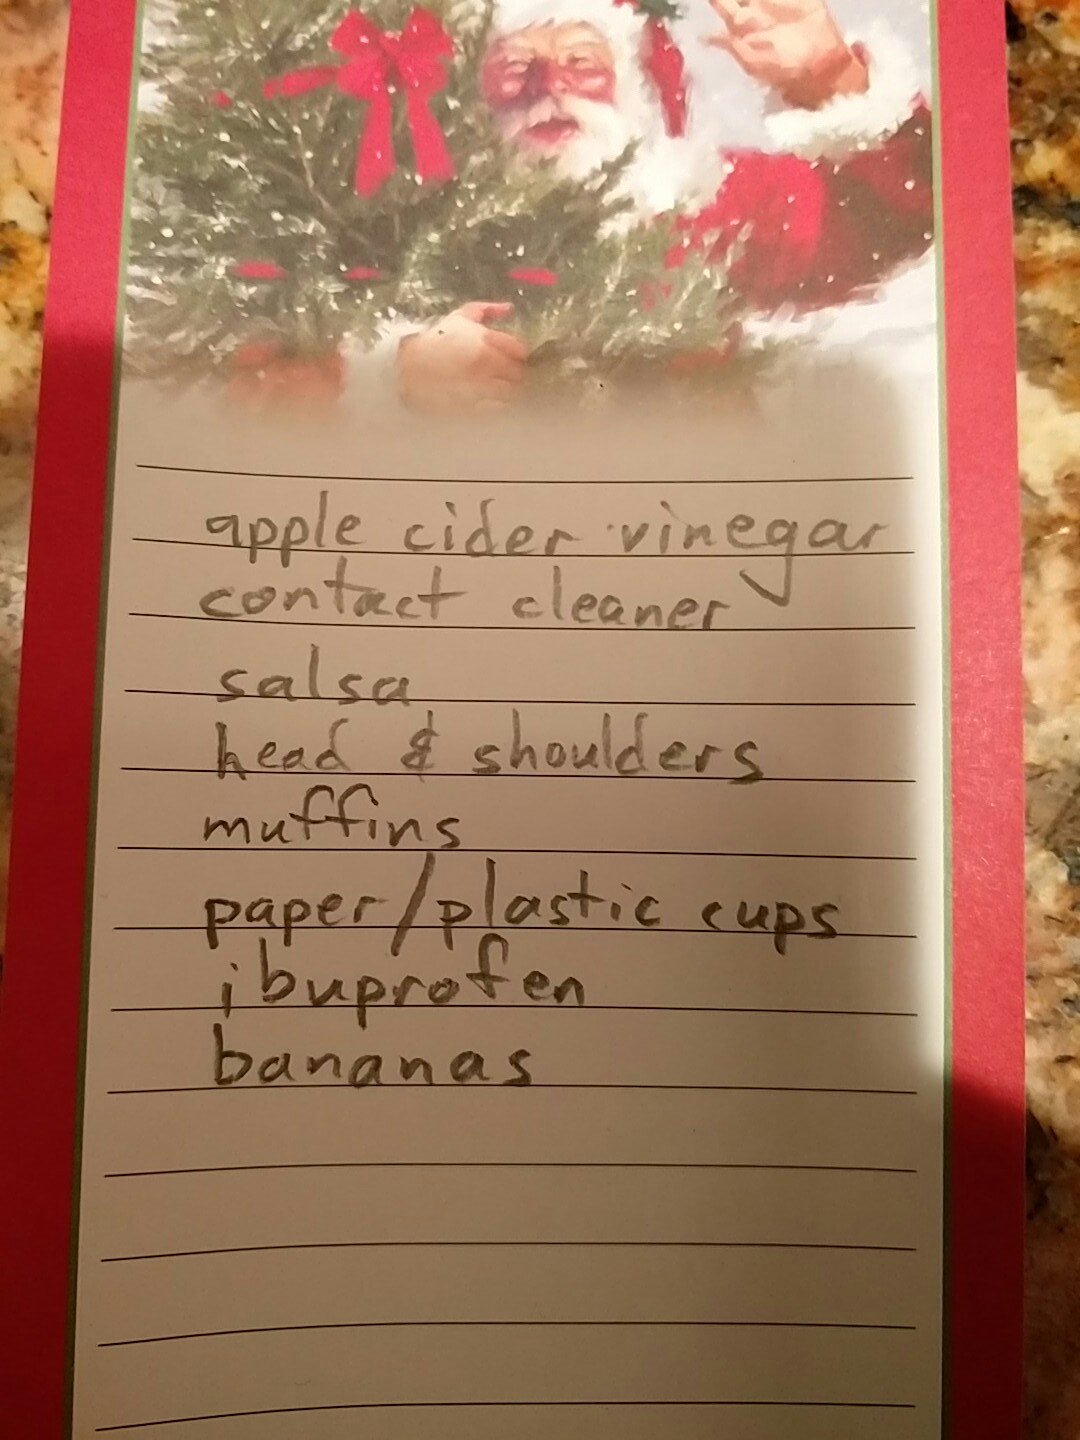 apple cider vinegar
contact cleaner
salsa
head & shoulders
muffins
paper/plastic cups
ibuprofen
bananas